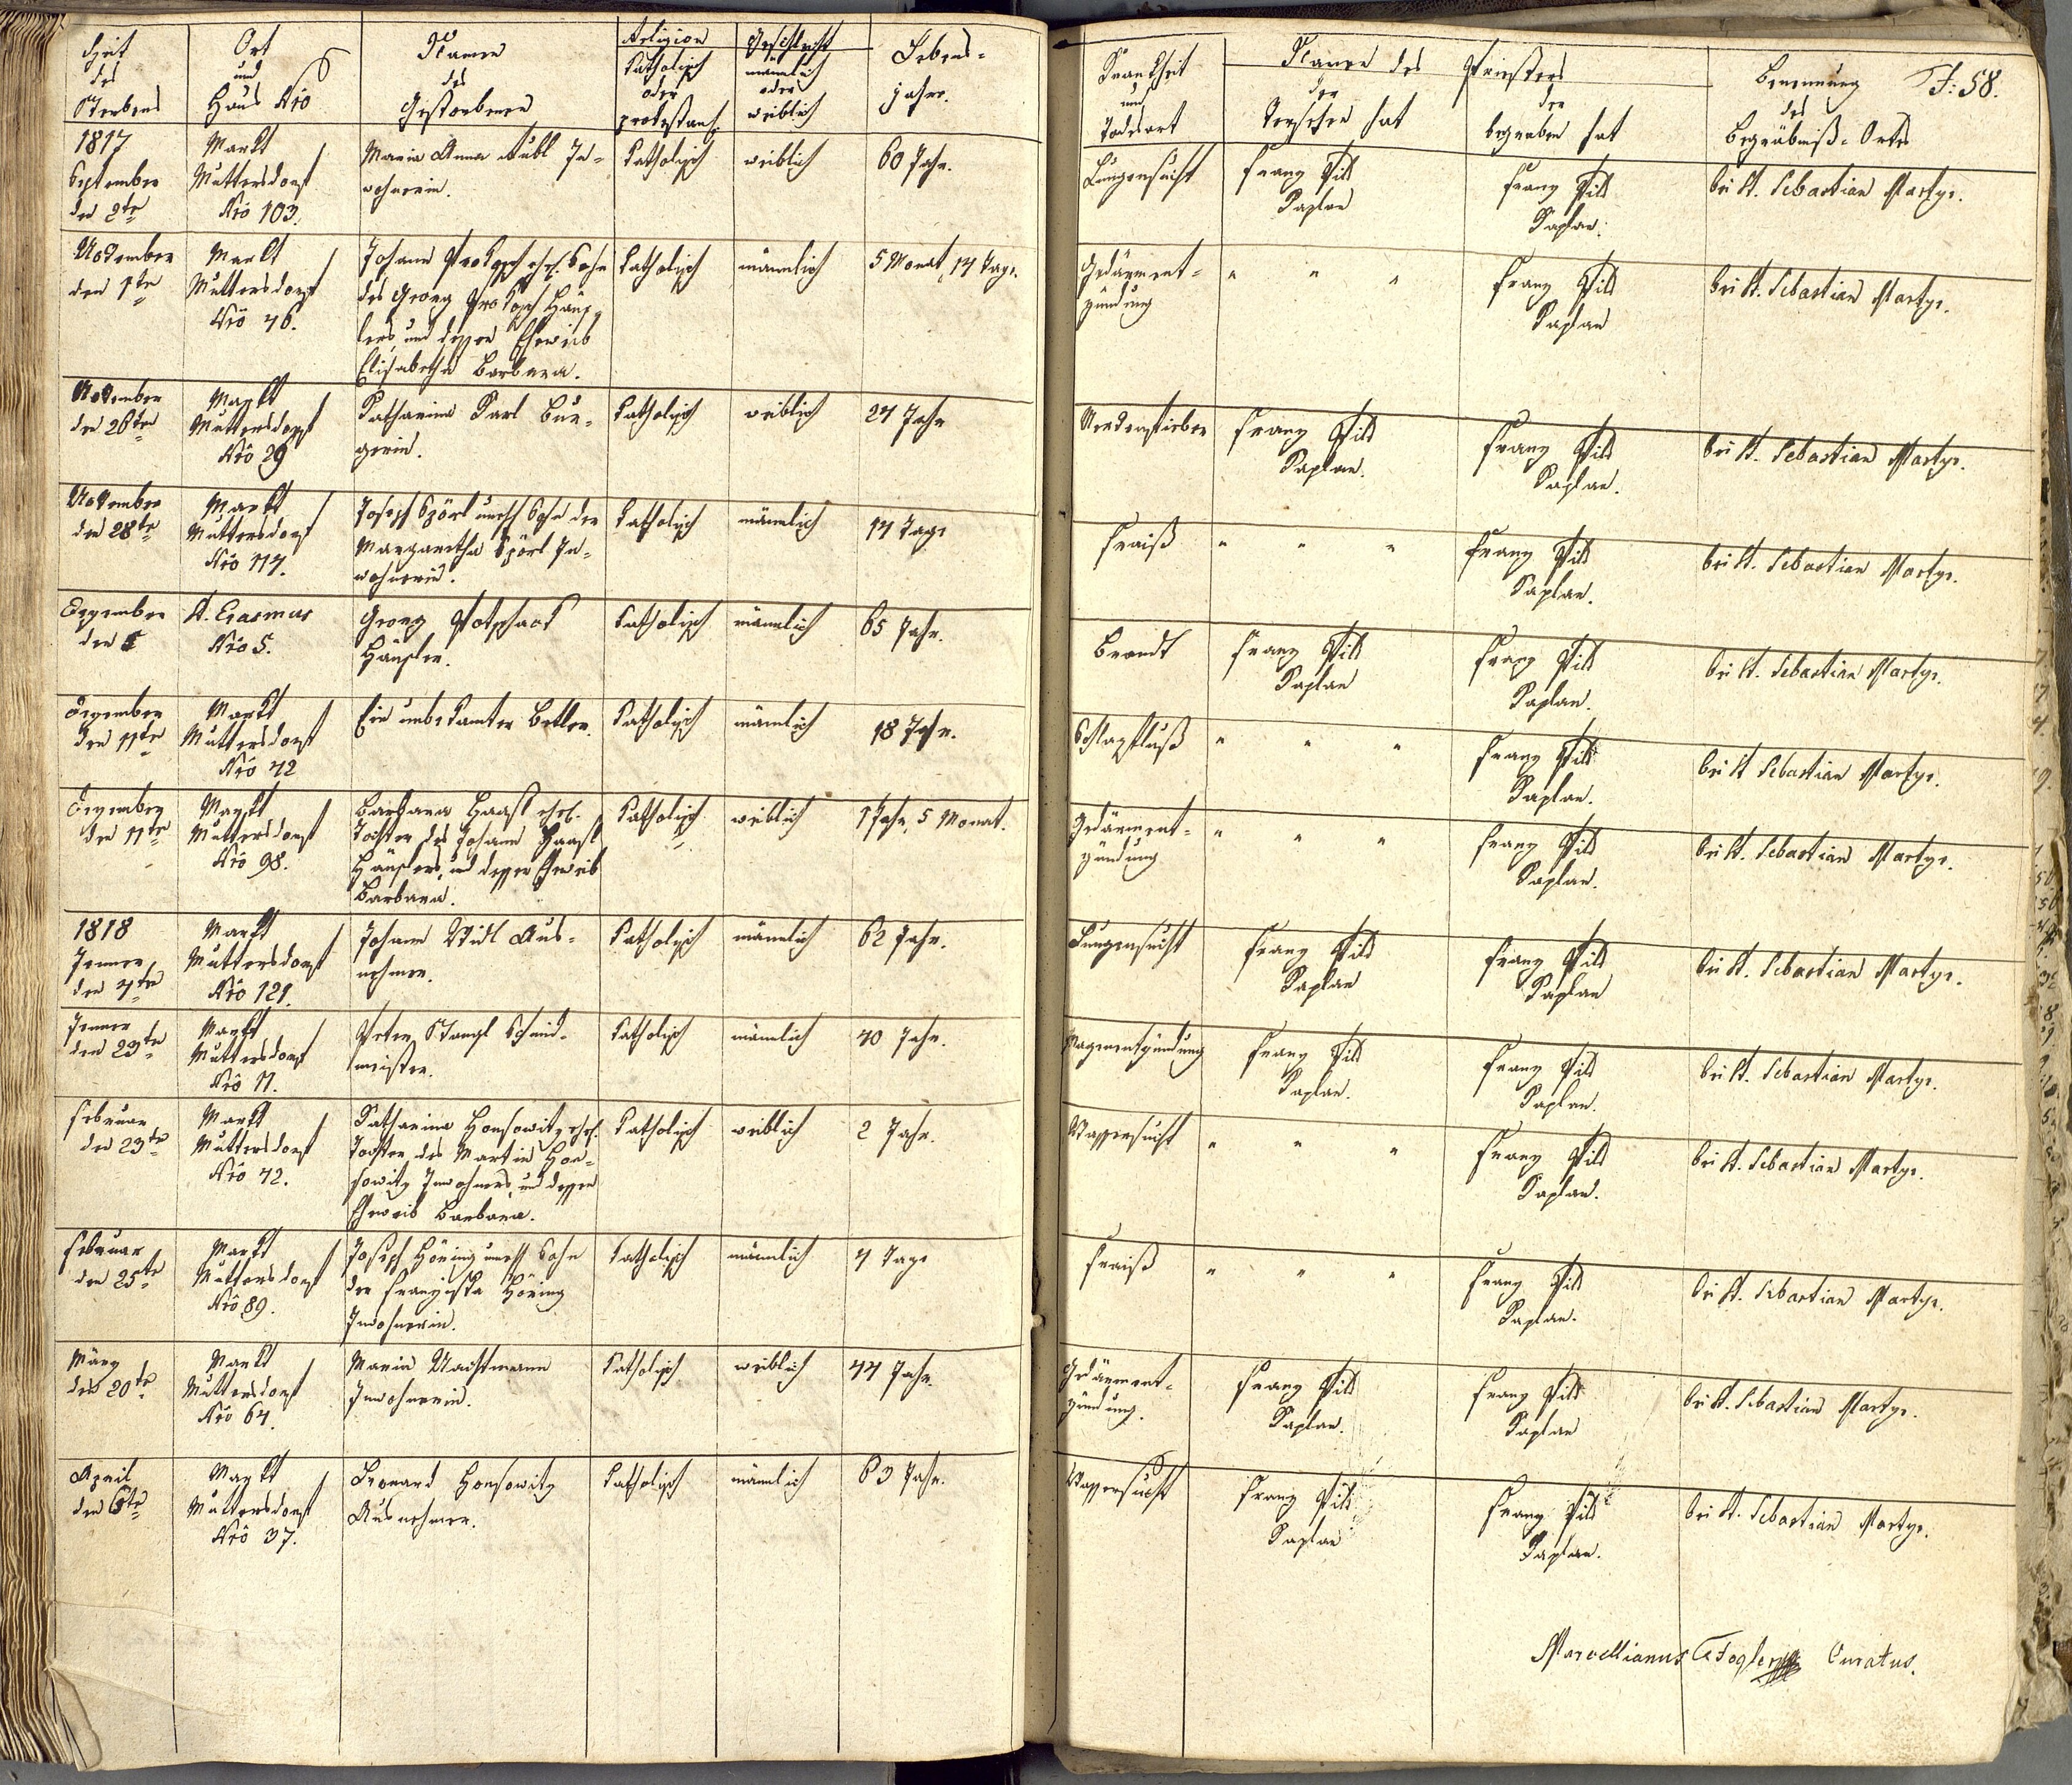 Zeit
des
Sterbens
Ort
und
Haus Nro
Namen
des
Gestorbenen
Religion
Katholisch
oder
protestant.
Geschlecht
männlich
oder
weiblich
Lebens-
jahre.
Krankheit
und
Todesart
Namen des Priesters
der
versehen hat
der
begraben hat
Benennung
des
Begräbniß-Ortes
F: 58.
1817
September
den 2te
Markt
Muttersdorf
Nro 103.
Maria Anna In-
wohnerin.
Katholisch
weiblich
60 Jahr.
Lungensucht
Franz Pill
Kaplan
Franz Pill
Kaplan.
bei St. Sebastian Martyr.
November
den 1te
Markt
Muttersdorf
Nro 46.
Johann Prokopp ehel. Sohn
des Georg Prokopp Häus-
lers, und dessen Eheweib
Elisabetha Barbara.
Katholisch
männlich
5 Monat, 14 Tage.
Gedärment-
zündung
" " "
Franz Pill
Kaplan
bei St. Sebastian Martyr.
November
den 26te
Markt
Muttersdorf
Nro 29
Katharina Karl Bür-
gerin.
Katholisch
weiblich
24 Jahr
Nervenfieber
Franz Pill
Kaplan.
Franz Pill
Kaplan.
bei St. Sebastian Martyr.
November
den 28te
Markt
Muttersdorf
Nro 114.
Joseph Spörl unehl Sohn der
Margaretha Spörl In-
wohnerin.
Katholisch
männlich
14 Tage
Fraiß
" " "
Franz Pill
Kaplan.
bei St. Sebastian Martyr.
Dezember
den
St. Erasmus
Nro 5.
Georg
Häusler.
Katholisch
männlich
65 Jahr.
Brandt
Franz Pill
Kaplan
Franz Pill
Kaplan.
bei St. Sebastian Martyr.
Dezember
den 11te
Markt
Muttersdorf
Nro 42
Ein unbekannter Betler.
Katholisch
männlich
18 Jahr.
Schlagfluß
" " "
Franz Pill
Kaplan.
bei St Sebastian Martyr.
Dezember
den 11te
Markt
Muttersdorf
Nro 98.
Barbara Haasl ehel.
Tochter des Johann Haasl
Häuslers, und dessen Eheweib
Barbara.
Katholisch
weiblich
1 Jahr, 5 Monat.
Gedärment-
zündung
" " "
Franz Pill
Kaplan.
bei St. Sebastian Martyr.
1818
Jenner
den 4te
Markt
Muttersdorf
Nro 121.
Johann Weidl Aus-
nehmer.
Katholisch
männlich
62 Jahr.
Lungensucht
Franz Pill
Kaplan
Franz Pill
Kaplan
bei St. Sebastian Martyr.
Jenner
den 23te
Markt
Muttersdorf
Nro 11.
Peter Stangl Schmid-
meister.
Katholisch
männlich
40 Jahr.
Magenentzündung
Franz Pill
Kaplan.
Franz Pill
Kaplan.
bei St. Sebastian Martyr.
Februar
den 23te
Markt
Muttersdorf
Nro 42.
Katharina Honsowitz ehel.
Tochter des Martin Hon-
sowitz Inwohners, und dessen
Eheweib Barbara.
Katholisch
weiblich
2 Jahr.
Wassersucht
" " "
Franz Pill
Kaplan.
bei St. Sebastian Martyr.
Februar
den 25te
Markt
Muttersdorf
Nro 89.
Joseph Höning unehl Sohn
der Franziska Höning
Inwohnerin.
Katholisch
männlich
4 Tage
Fraiß
" " "
Franz Pill
Kaplan.
bei St. Sebastian Martyr.
März
den 20te
Markt
Muttersdorf
Nro 64.
Maria Wachtmann
Inwohnerin.
Katholisch
weiblich
44 Jahr.
Gedärment-
zündung.
Franz Pill
Kaplan.
Franz Pill
Kaplan
bei St. Sebastian Martyr.
April
den 6te
Markt
Muttersdorf
Nro 37.
Leonard Honsowitz
Ausnehmer.
Katholisch
männlich
63 Jahr.
Wassersucht
Franz Pill
Kaplan
Franz Pill
Kaplan.
bei St. Sebastian Martyr.
Marcellianus Curatus.